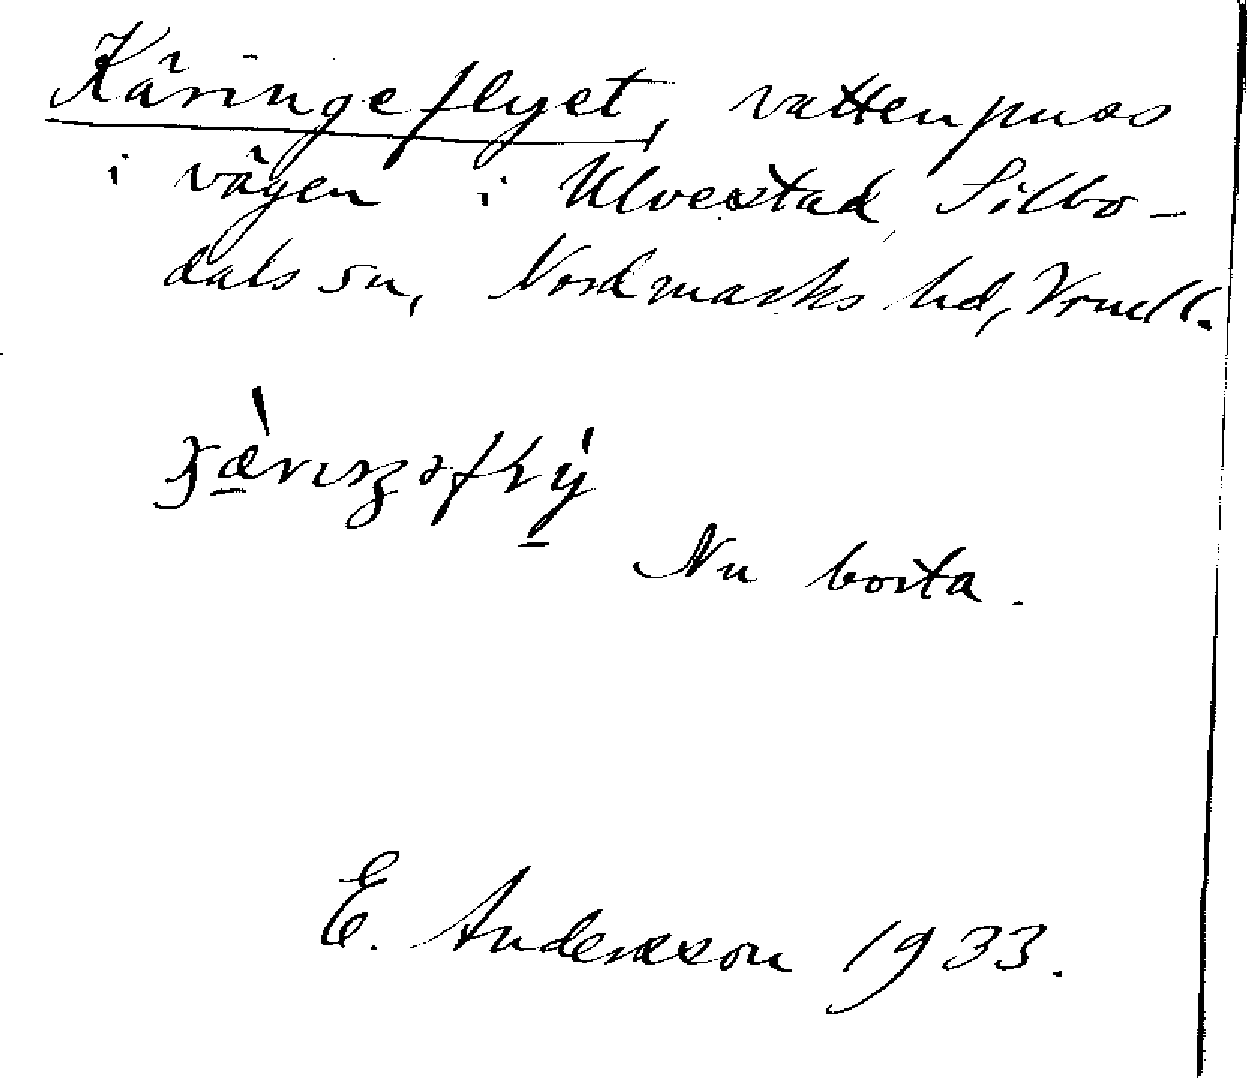 Käringeflyet, vattenpuss
i vägen i Ulvestad, Silbo-
dals sn, Nordmarks hd, Vrmdl.
Nu borta.
E. Andersson 1933.